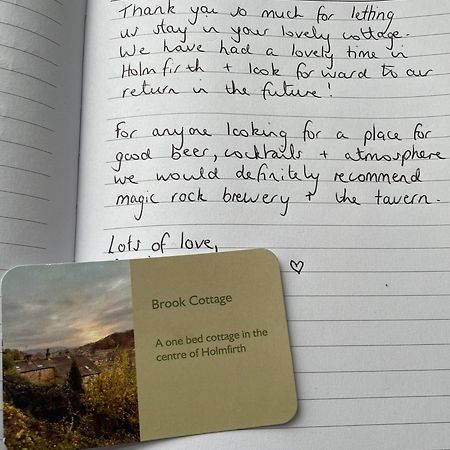 Thank you so much for letting
us stay in your lovely cottage.
We have had a lovely time in
Holmfirth + look forward to our
return in the future!
For anyone looking for a place for
good beer, cocktails + atmosphere
we would definitely recommend
magic rock brewery + the tavern.
Lots of love,
♡
Brook Cottage
A one bed cottage in the
centre of Holmfirth